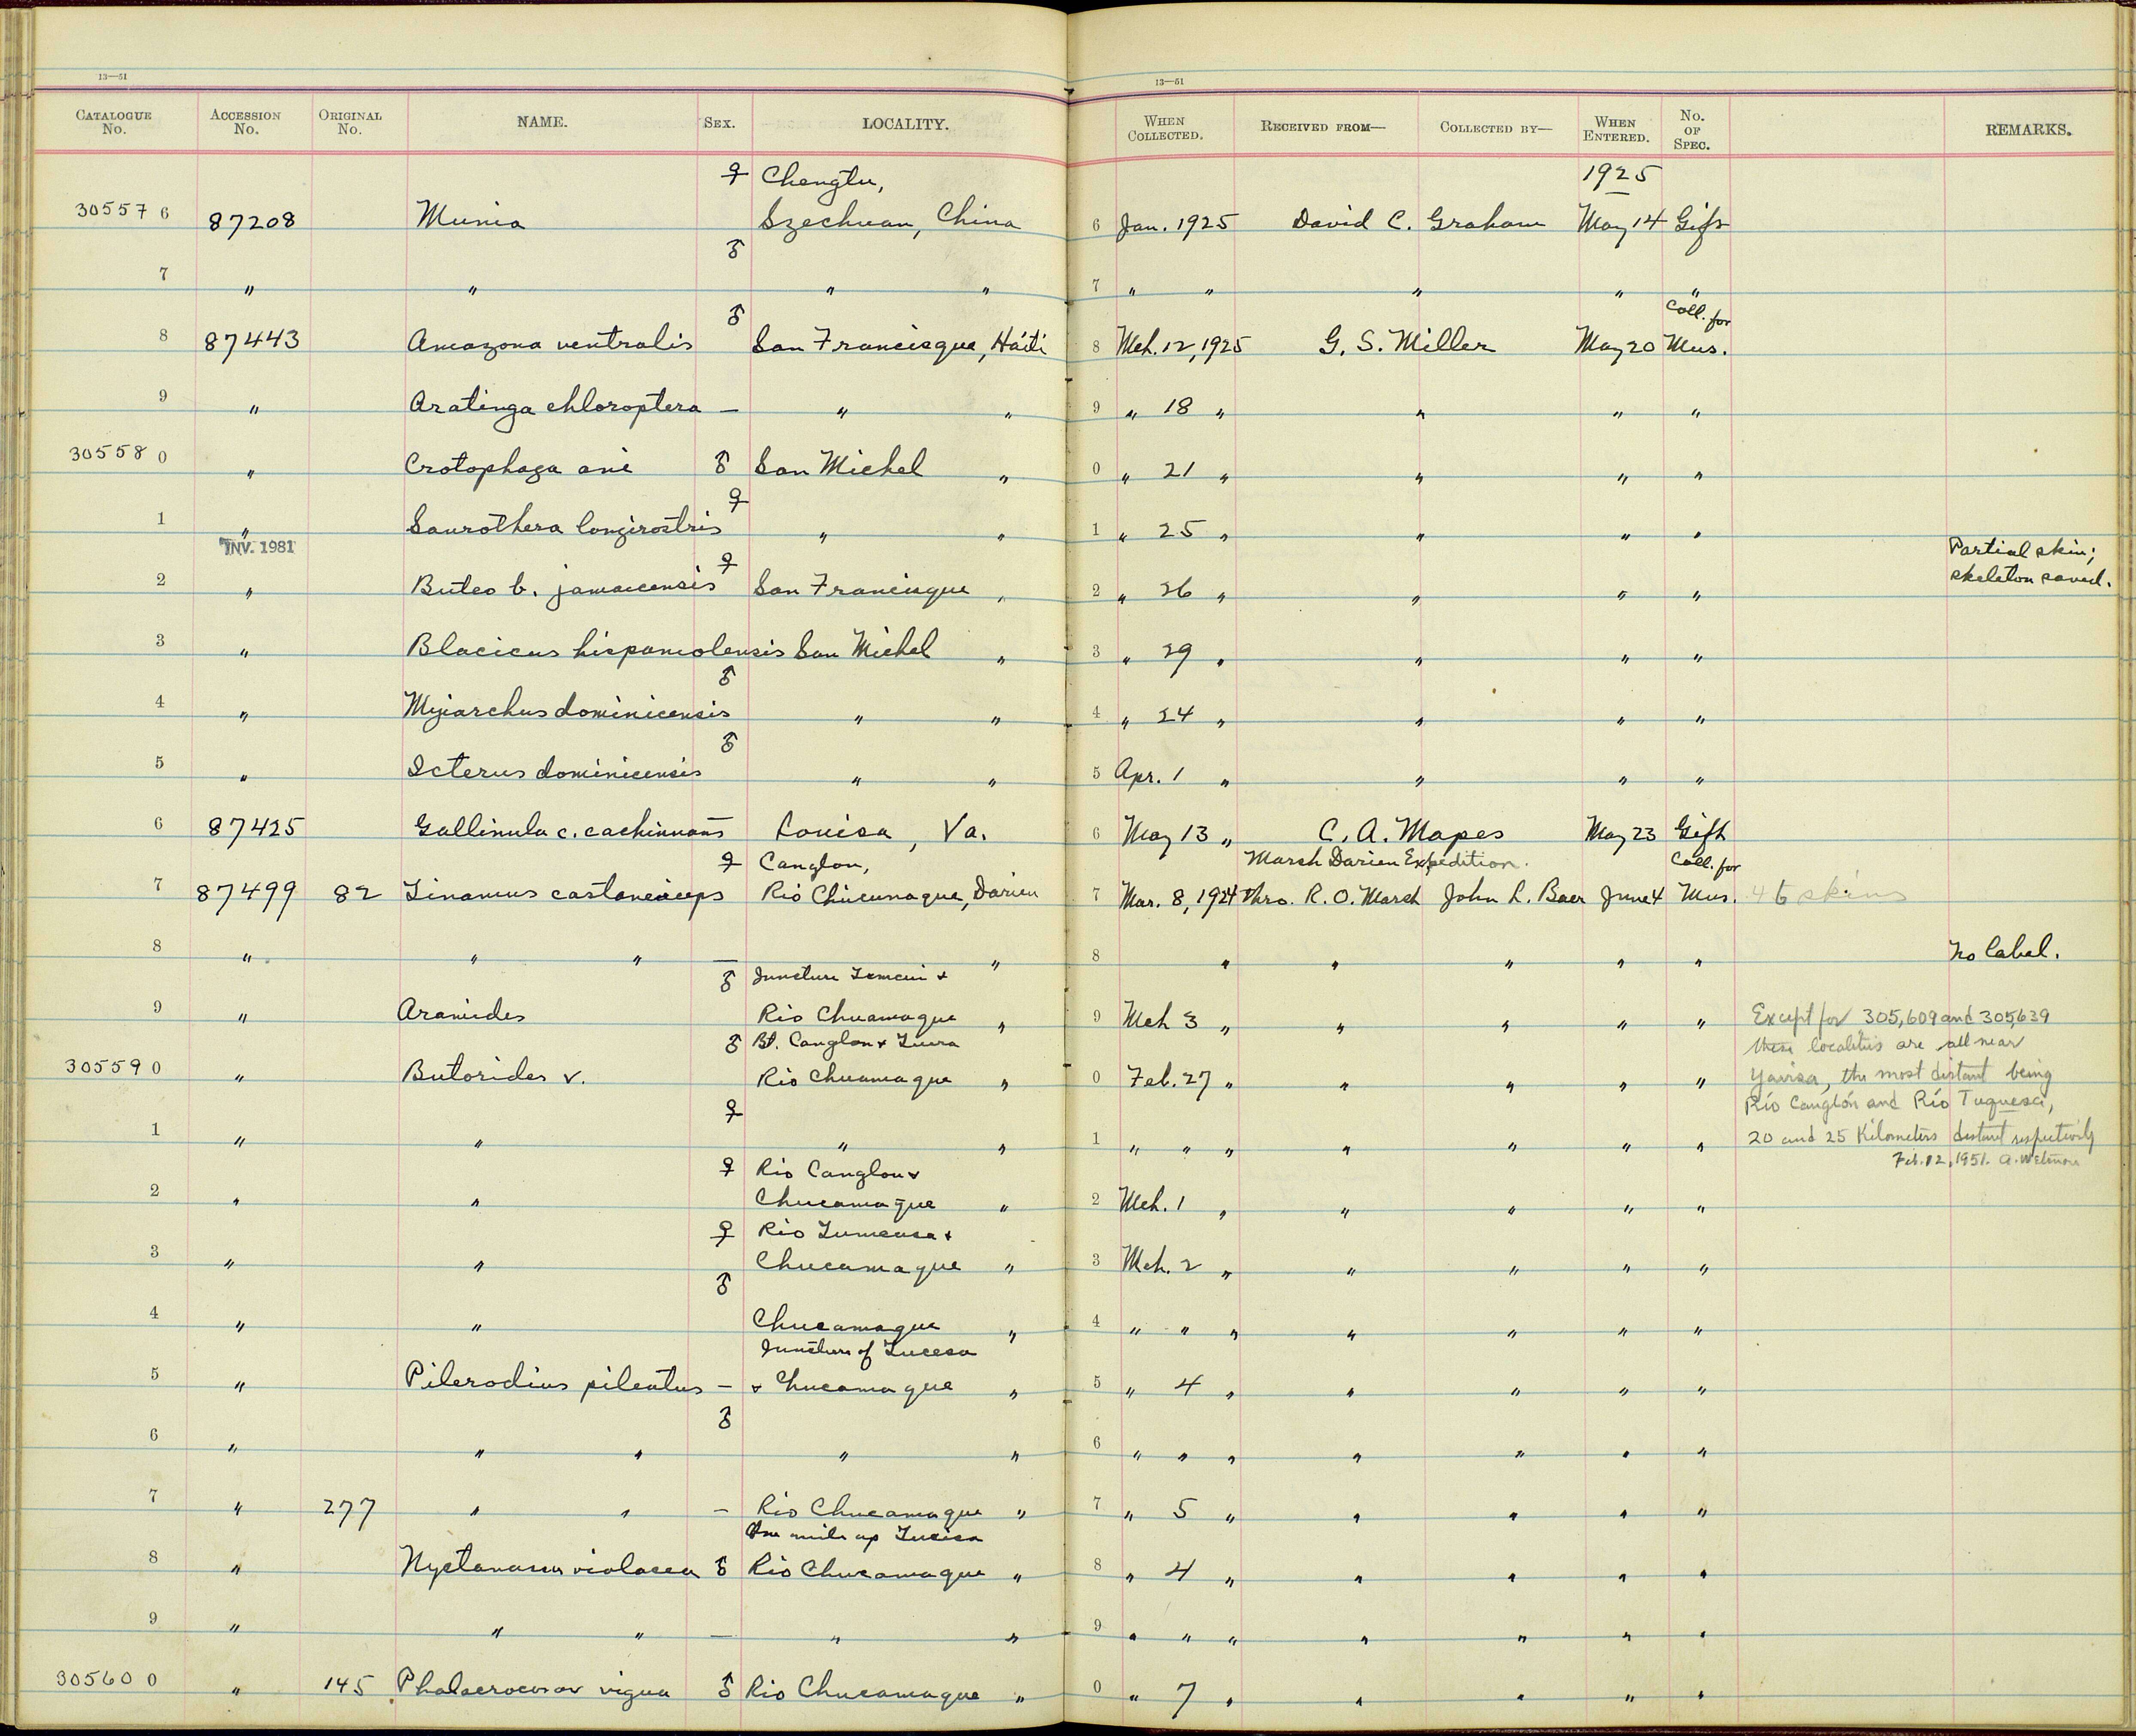 13—51
13—51
CATALOGUE No. ACCESSION No. ORIGINAL No. NAME. SEX. LOCALITY. WHEN COLLECTED. RECEIVED FROM— COLLECTED BY— WHEN ENTERED. No. OF SPEC. REMARKS.
♀ Chengtu, 1925
305576 87208 Munia Szechuan, China 6 Jan. 1925 David C. Graham May 14 Gift
♂
7 " " " " 7 " " " " "
♂ Coll. for
8 87443 Amazona ventralis San Francisque, Haiti 8 Mch. 12, 1925 G. S. Miller May 20 Mus.
9 " Aratinga chloroptera — " " 9 " 18 " " " "
305580 " Crotophaga ani ♂ San Michel " 0 " 21 " " " "
♀
1 " Saurothera longirostris " " 1 " 25 " " " "
INV. 1981 Partial skin;
♀ skeleton saved.
2 " Buteo b. jamaicensis San Francisque " 2 " 26 " " " "
3 " Blacicus hispaniolensis San Michel " 3 " 29 " " " "
♂
4 " Myiarchus dominicensis " " 4 " 24 " " " "
♂
5 " Icterus dominicensis " " 5 Apr. 1 " " " "
6 87425 Gallinula c. cachinnans Louisa, Va. 6 May 13 " C. A. Mapes May 23 Gift
♀ Canglon, Marsh Darien Expedition. Coll. for
7 87499 82 Tinamus castaneiceps Rio Chucunaque, Darien 7 Mar. 8, 1924 thro. R. O. Marsh John L. Baer June 4 Mus. 46 skins
8 " " " — " 8 " " " " " No label.
♂ Juncture &
9 " Aramides Rio Chucamaque " 9 Mch 3 " " " " " Except for 305,609 and 305,639
♂ Bt. Canglon & these localities are all near
305590 " Butorides v. Rio Chucamaque " 0 Feb. 27 " " " " " Yavisa, the most distant being
♀ Río Canglón and Río Tuquesa,
1 " " " " 1 " " " " " " " 20 and 25 Kilometers distant respectively
♀ Rio Canglon & Feb. 12, 1951. A. Wetmore
2 " " Chucamaque " 2 Mch. 1 " " " " "
♀ Rio &
3 " " Chucamaque " 3 Mch. 2 " " " " "
♂
4 " " Chucamaque " 4 " " " " " " "
Juncture of
5 " Pilerodius pileatus — & Chucamaque " 5 " 4 " " " " "
♂
6 " " " " " 6 " " " " " " "
7 " 277 " " — Rio Chucamaque " 7 " 5 " " " " "
One mile up
8 " Nyctanassa violacea ♂ Rio Chucamaque " 8 " 4 " " " " "
9 " " " — " " 9 " " " " " " "
305600 " 145 Phalacrocorax vigua ♂ Rio Chucamaque " 0 " 7 " " " " "